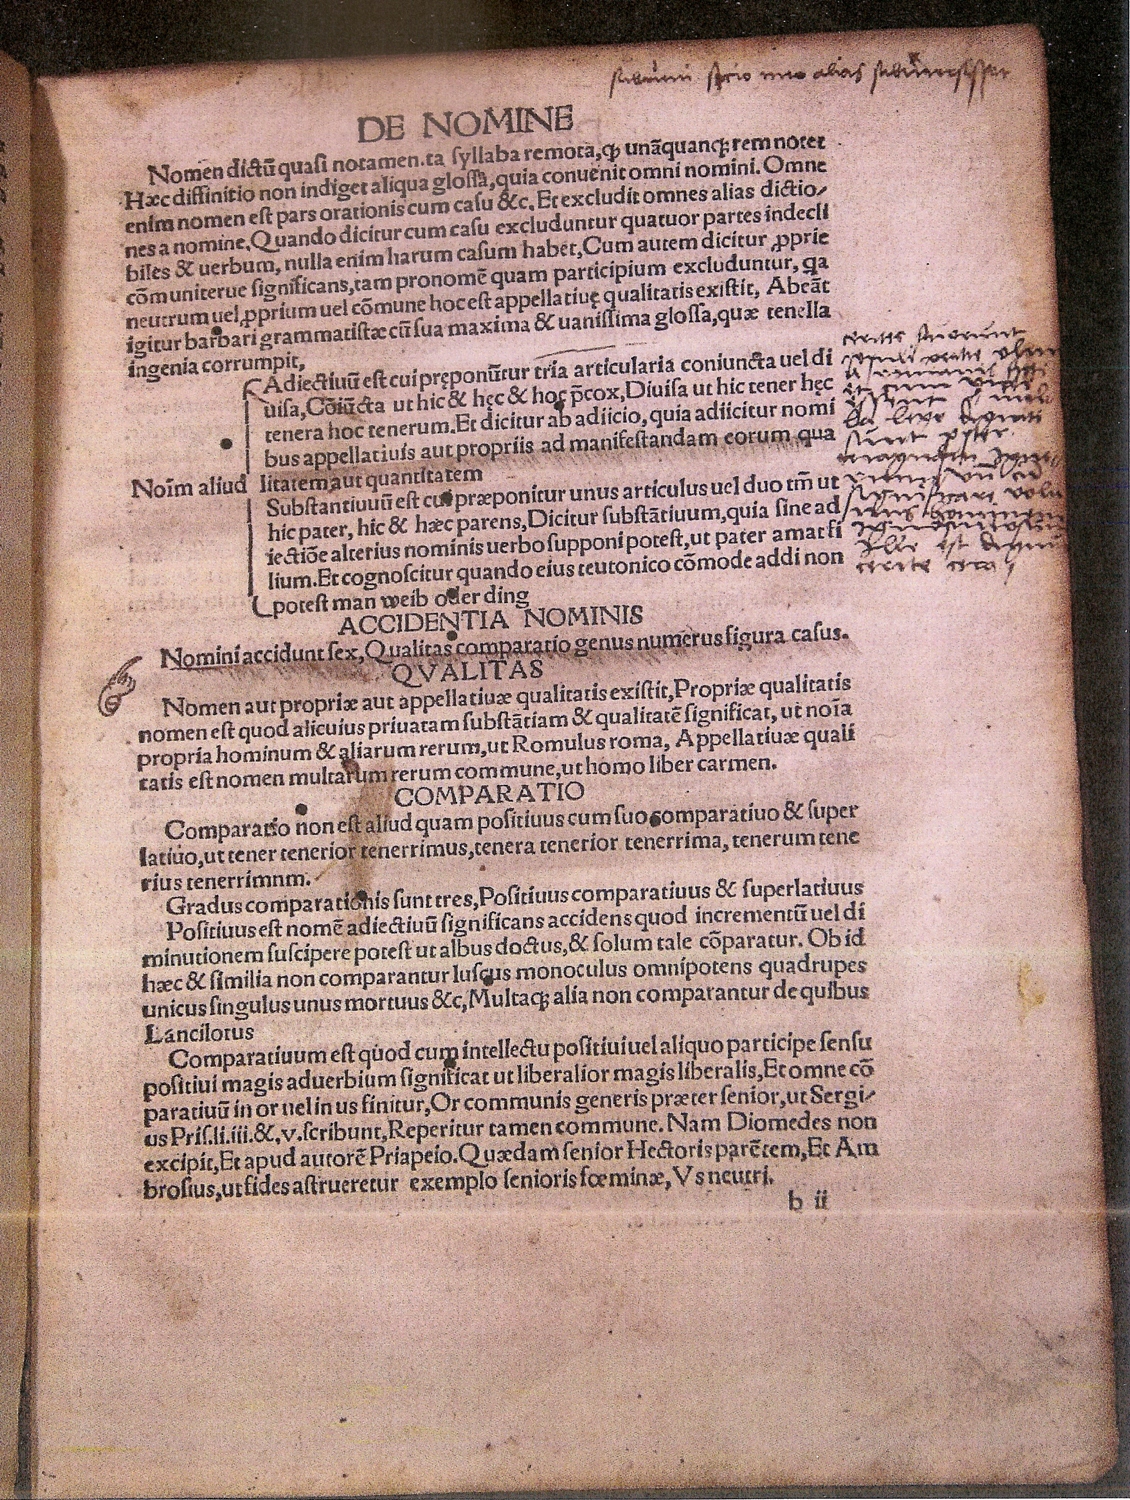 DE NOMINE
Nomen dictū quasi notamen.ta syllaba remota,ꝙ unāquanqꝫ rem notet
Hæc diffinitio non indiget aliqua glossa,quia conuenit omni nomini. Omne
enim nomen est pars orationis cum casu &c. Et excludit omnes alias dictio⸗
nes a nomine.Quando dicitur cum casu excluduntur quatuor partes indecli
biles & uerbum, nulla enim harum casum habet,Cum autem dicitur ꝓprie
cōmuniterue significans,tam pronomē quam participium excluduntur, qa
neutrum uel ꝓprium uel cōmune hoc est appellatiuę qualitatis existit, Abeāt
igitur barbari grammatistæ cū sua maxima & uanissima glossa,quæ tenella
ingenia corrumpit,
Adiectiuū est cui pręponūtur tria articularia coniuncta uel di
uisa,Cōiūcta ut hic & hęc & hoc p̄cox,Diuisa ut hic tener hęc
tenera hoc tenerum.Et dicitur ab adiicio, quia adiicitur nomi
bus appellatiuis aut propriis ad manifestandam eorum qua
Noīm aliud litatem aut quantitatem
Substantiuuū est cui præponitur unus articulus uel duo tm̄ ut
hic pater, hic & hæc parens,Dicitur substātiuum,quia sine ad
iectiōe alterius nominis uerbo supponi potest,ut pater amat fi
lium.Et cognoscitur quando eius teutonico cōmode addi non
potest man weib oder ding
ACCIDENTIA NOMINIS
Nomini accidunt sex,Qualitas comparatio genus numerus figura casus.
QVALITAS
Nomen aut propriæ aut appellatiuæ qualitatis existit,Propriæ qualitatis
nomen est quod alicuius priuatam substātiam & qualitatē significat, ut noīa
propria hominum & aliarum rerum,ut Romulus roma, Appellatiuæ quali
tatis est nomen multarum rerum commune,ut homo liber carmen.
COMPARATIO
Comparatio non est aliud quam positiuus cum suo comparatiuo & super
latiuo,ut tener tenerior tenerrimus,tenera tenerior tenerrima, tenerum tene
rius tenerrimnm.
Gradus comparationis sunt tres,Positiuus comparatiuus & superlatiuus
Positiuus est nomē adiectiuū significans accidens quod incrementū uel di
minutionem suscipere potest ut albus doctus,& solum tale cōparatur. Ob id
hæc & similia non comparantur luscus monoculus omnipotens quadrupes
unicus singulus unus mortuus &c,Multaqꝫ alia non comparantur de quibus
Lancilotus
Comparatiuum est quod cum intellectu positiui uel aliquo participe sensu
positiui magis aduerbium significat ut liberalior magis liberalis,Et omne cō
paratiuū in or uel in us finitur,Or communis generis præter senior,ut Sergi⸗
us Pris.li.iii.&.v.scribunt,Reperitur tamen commune. Nam Diomedes non
excipit,Et apud autorē Priapeio.Quædam senior Hectoris parētem,Et Am
brosius,ut fides astrueretur exemplo senioris fœminæ,Vs neutri.
b ii